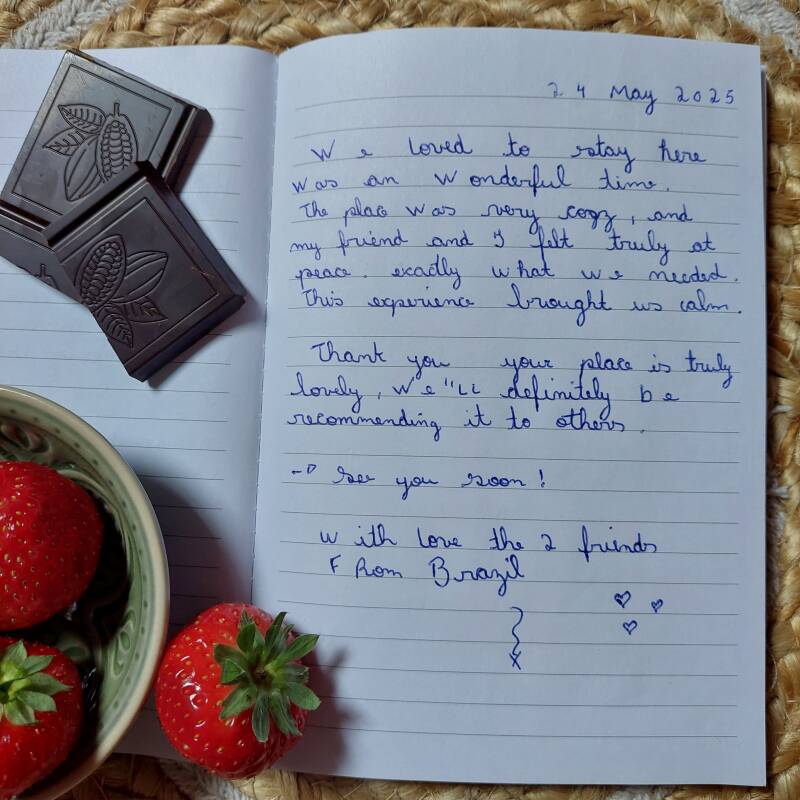 24 May 2025
We loved to stay here
was an wonderful time.
The place was very cogz, and
my friend and I felt truly at
peace. exactly what we needed.
This experience brought us calm.
Thank you your place is truly
lovely, we"ll definitely be
recommending it to others.
→ See you soon!
With love the 2 friends
From Brazil